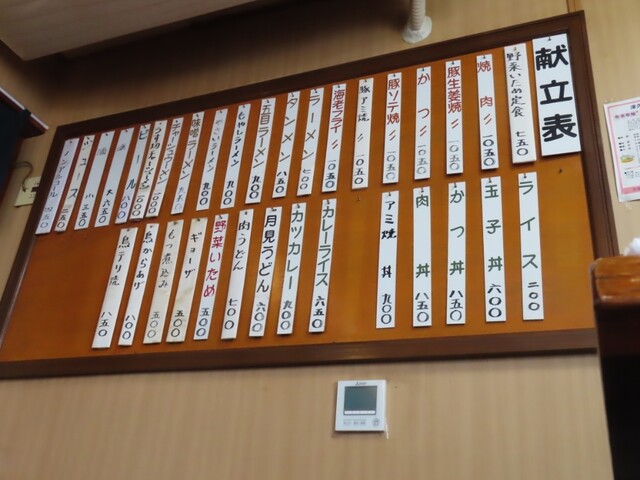 献立表
野菜いため定食 七五〇
焼肉〃 一〇五〇
豚生姜焼〃 一〇五〇
かつ〃 一〇五〇
豚ソテ焼〃 一〇五〇
豚アミ焼〃 一〇五〇
海老フライ〃 一〇五〇
ラーメン 七〇〇
タンメン 八五〇
五目ラーメン 九〇〇
もやしラーメン 九〇〇
ラーメン 九〇〇
味噌ラーメン 九〇〇
チャーシューメン
ビール
酒
ジュース
ノンアルコール 四五〇
ライス 二〇〇
玉子丼 六〇〇
かつ丼 八五〇
肉丼 八五〇
アミ焼丼 九〇〇
カレーライス 六五〇
カツカレー 九〇〇
月見うどん 六〇〇
肉うどん 七〇〇
野菜いため 五〇〇
ギョーザ 五〇〇
もつ煮込み 五〇〇
鳥からあげ 八〇〇
鳥テリ焼 八五〇